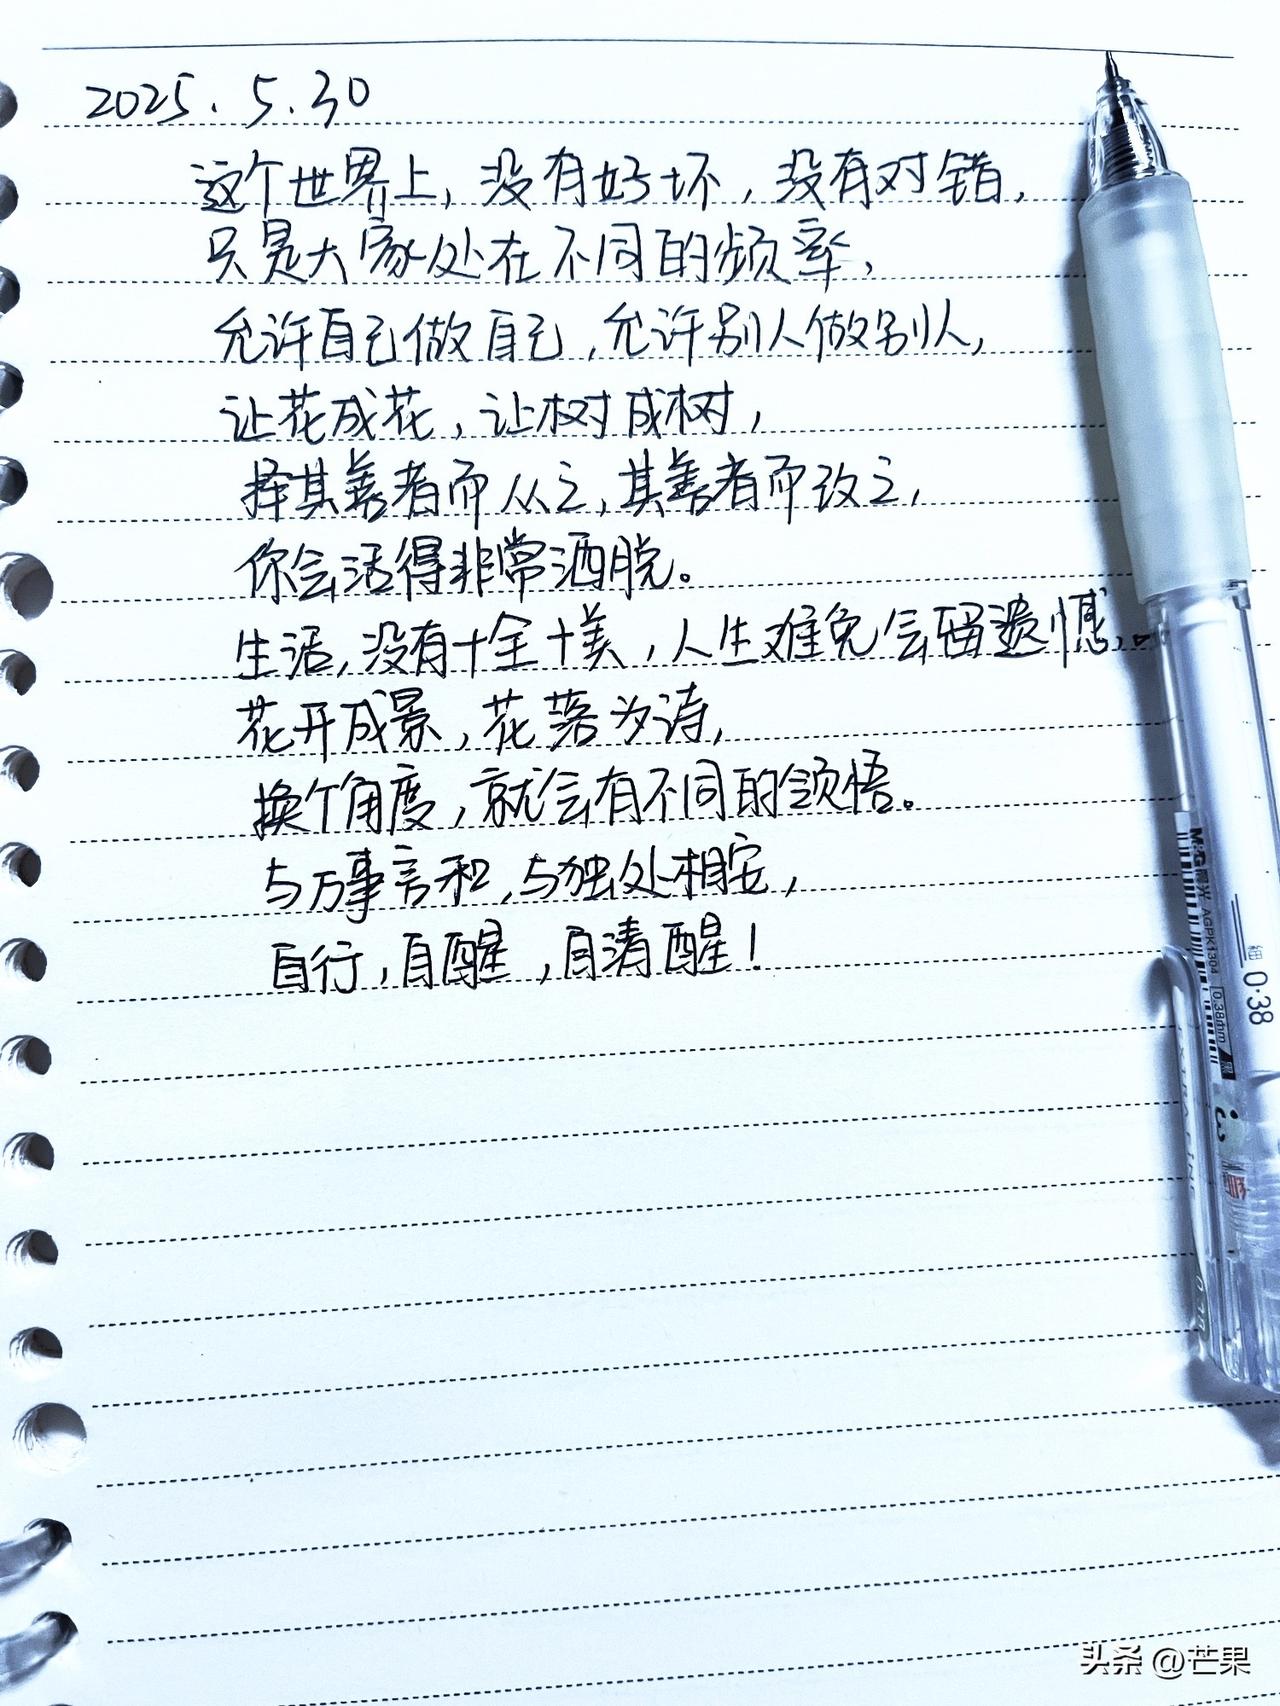 2025.5.30
这个世界上,没有好坏,没有对错,
只是大家处在不同的频率,
允许自己做自己,允许别人做别人,
让花成花,让树成树,
择其善者而从之,其善者而改之,
你会活得非常洒脱。
生活,没有十全十美,人生难免会留遗憾。
花开成景,花落为诗,
换个角度,就会有不同的领悟。
与万事言和,与独处相安,
自行,自醒,自清醒!
M&G 晨光 AGPK1304 0.38mm 黑
细 0.38
头条 @芒果